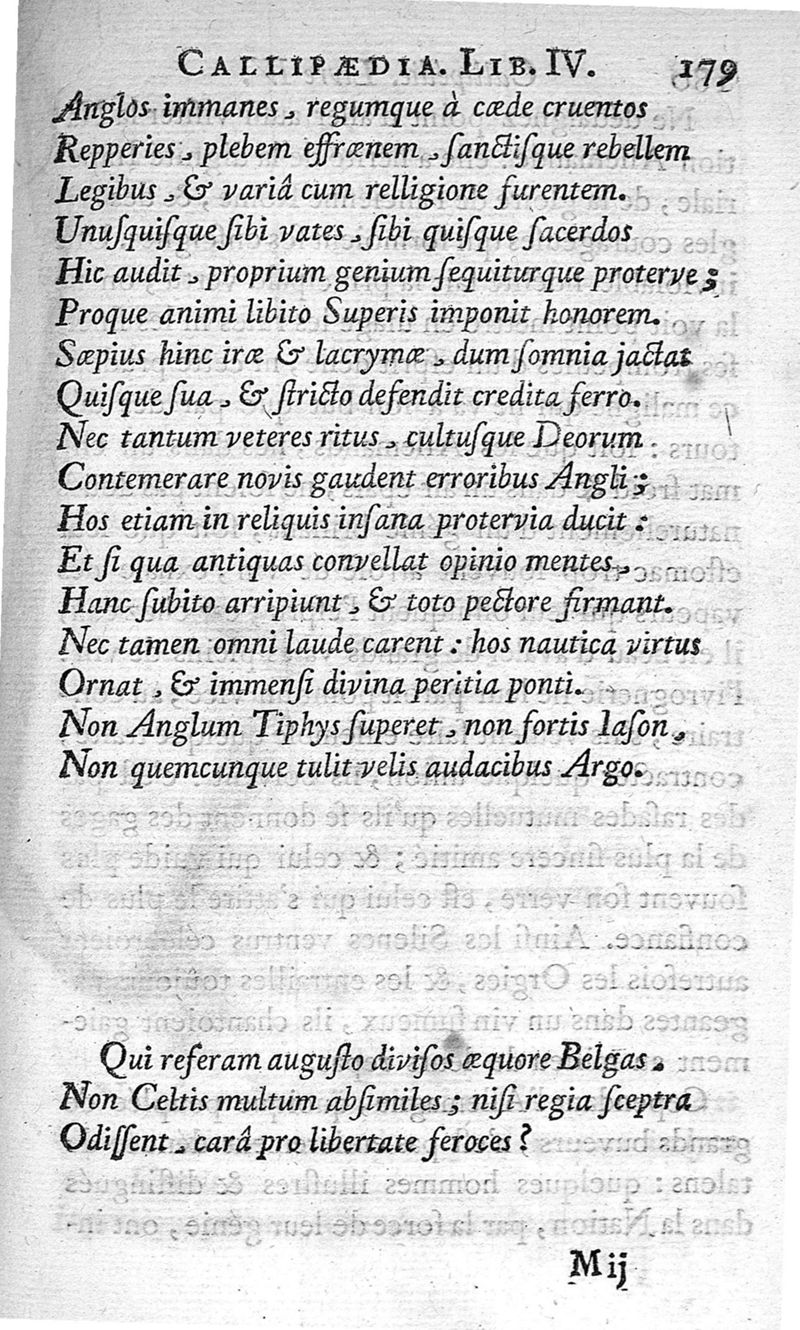 CALLIPÆDIA. LIB. IV. 179
Anglos immanes, regumque à cæde cruentos
Repperies, plebem effrænem, ſanctiſque rebellem
Legibus, & variâ cum relligione furentem.
Unuſquiſque ſibi vates, ſibi quiſque ſacerdos
Hic audit, proprium genium ſequiturque proterve;
Proque animi libito Superis imponit honorem.
Sæpius hinc iræ & lacrymæ, dum ſomnia jactat
Quiſque ſua, & ſtricto defendit credita ferro.
Nec tantum veteres ritus, cultuſque Deorum
Contemerare novis gaudent erroribus Angli;
Hos etiam in reliquis inſana protervia ducit:
Et ſi qua antiquas convellat opinio mentes,
Hanc ſubito arripiunt, & toto pectore firmant.
Nec tamen omni laude carent: hos nautica virtus
Ornat, & immenſi divina peritia ponti.
Non Anglum Tiphys ſuperet, non fortis Iaſon,
Non quemcunque tulit velis audacibus Argo.
Qui referam auguſto diviſos æquore Belgas,
Non Celtis multum abſimiles; niſi regia ſceptra
Odiſſent, carâ pro libertate feroces?
Mij